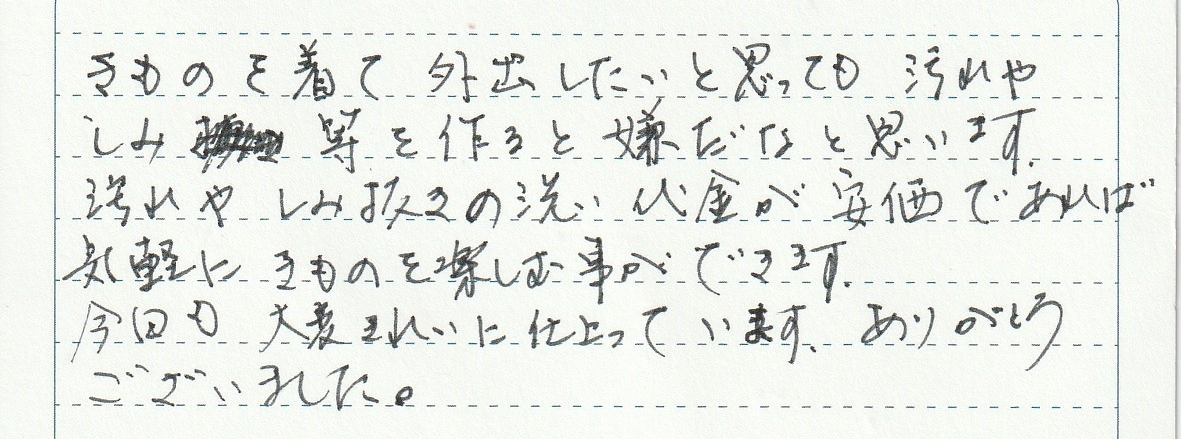 きものを着て 外出したいと思っても 汚れや
しみ 等を作ると嫌だなと思います。
汚れや しみ抜きの洗い代金が安価であれば
気軽に きものを楽しむ事ができます。
今回も 大変きれいに仕上っています。ありがとう
ございました。